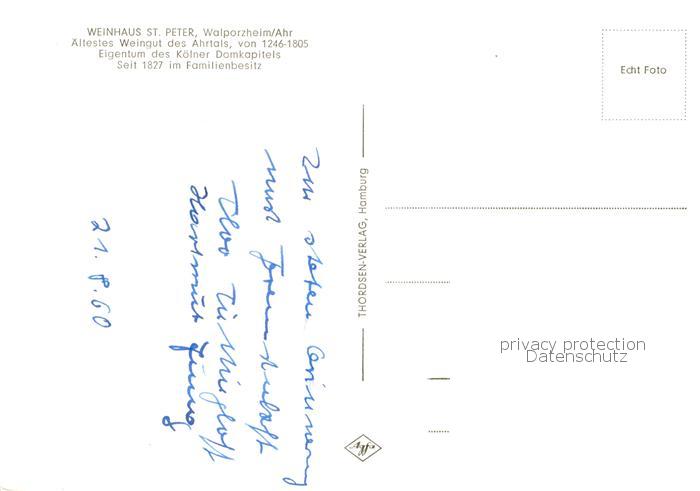 WEINHAUS ST. PETER, Walporzheim/Ahr
Ältestes Weingut des Ahrtals, von 1246-1805
Eigentum des Kölner Domkapitels
Seit 1827 im Familienbesitz
Echt Foto
THORDSEN-VERLAG, Hamburg
Zur steten Erinnerung
und Freundschaft
Theo
Hartmut Jung
21.8.60
privacy protection
Datenschutz
Agfa